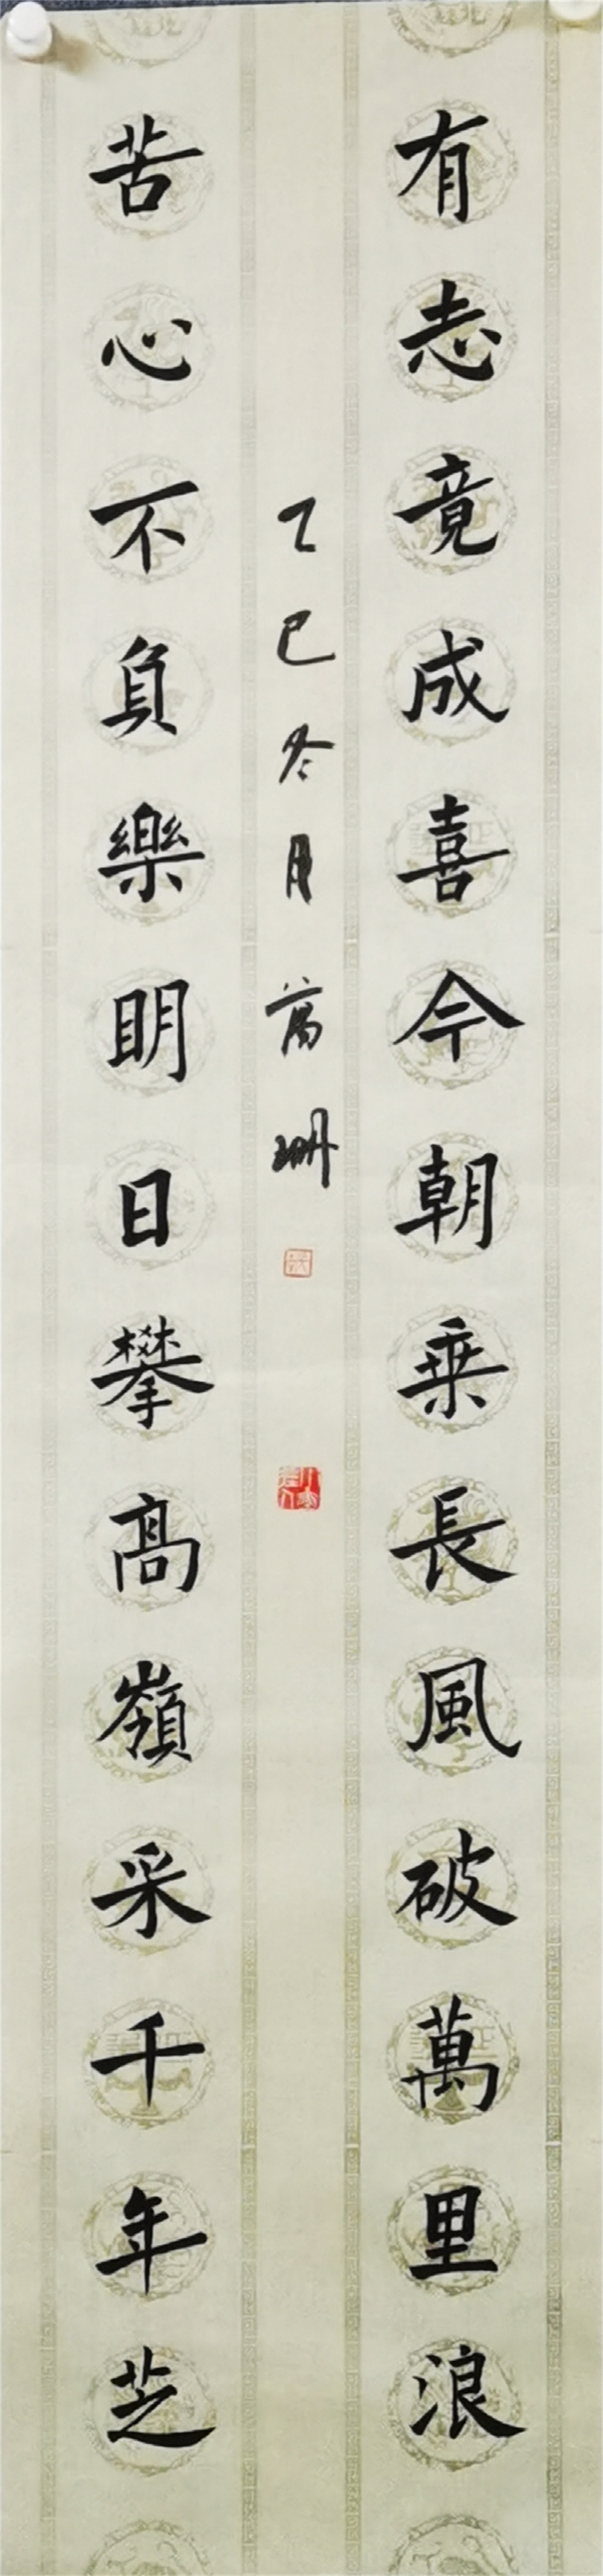 有志竟成喜今朝乗長風破萬里浪
苦心不負樂明日攀高嶺采千年芝
乙巳冬月萬珊